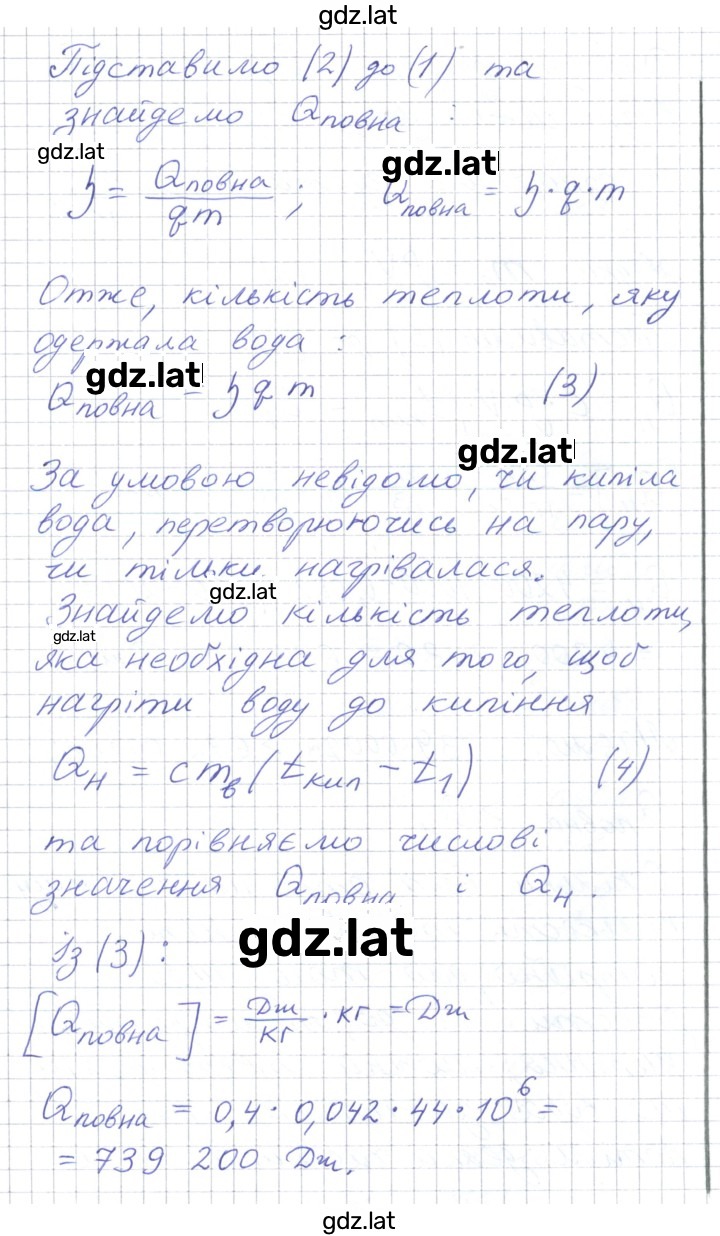 gdz.lat
Підставимо (2) до (1) та
знайдемо Qповна :
gdz.lat
gdz.lat
η = Qповна / qm ; Qповна = η · q · m
Отже, кількість теплоти, яку
одержала вода :
gdz.lat
Qповна = η q m (3)
gdz.lat
За умовою невідомо, чи кипіла
вода, перетворюючись на пару,
чи тільки нагрівалася.
gdz.lat
Знайдемо кількість теплоти,
gdz.lat
яка необхідна для того, щоб
нагріти воду до кипіння
Qн = cmв (tкип - t1) (4)
та порівняємо числові
значення Qповна і Qн.
gdz.lat
із (3) :
[Qповна] = Дж/кг · кг = Дж
Qповна = 0,4 · 0,042 · 44 · 10⁶ =
= 739 200 Дж.
gdz.lat